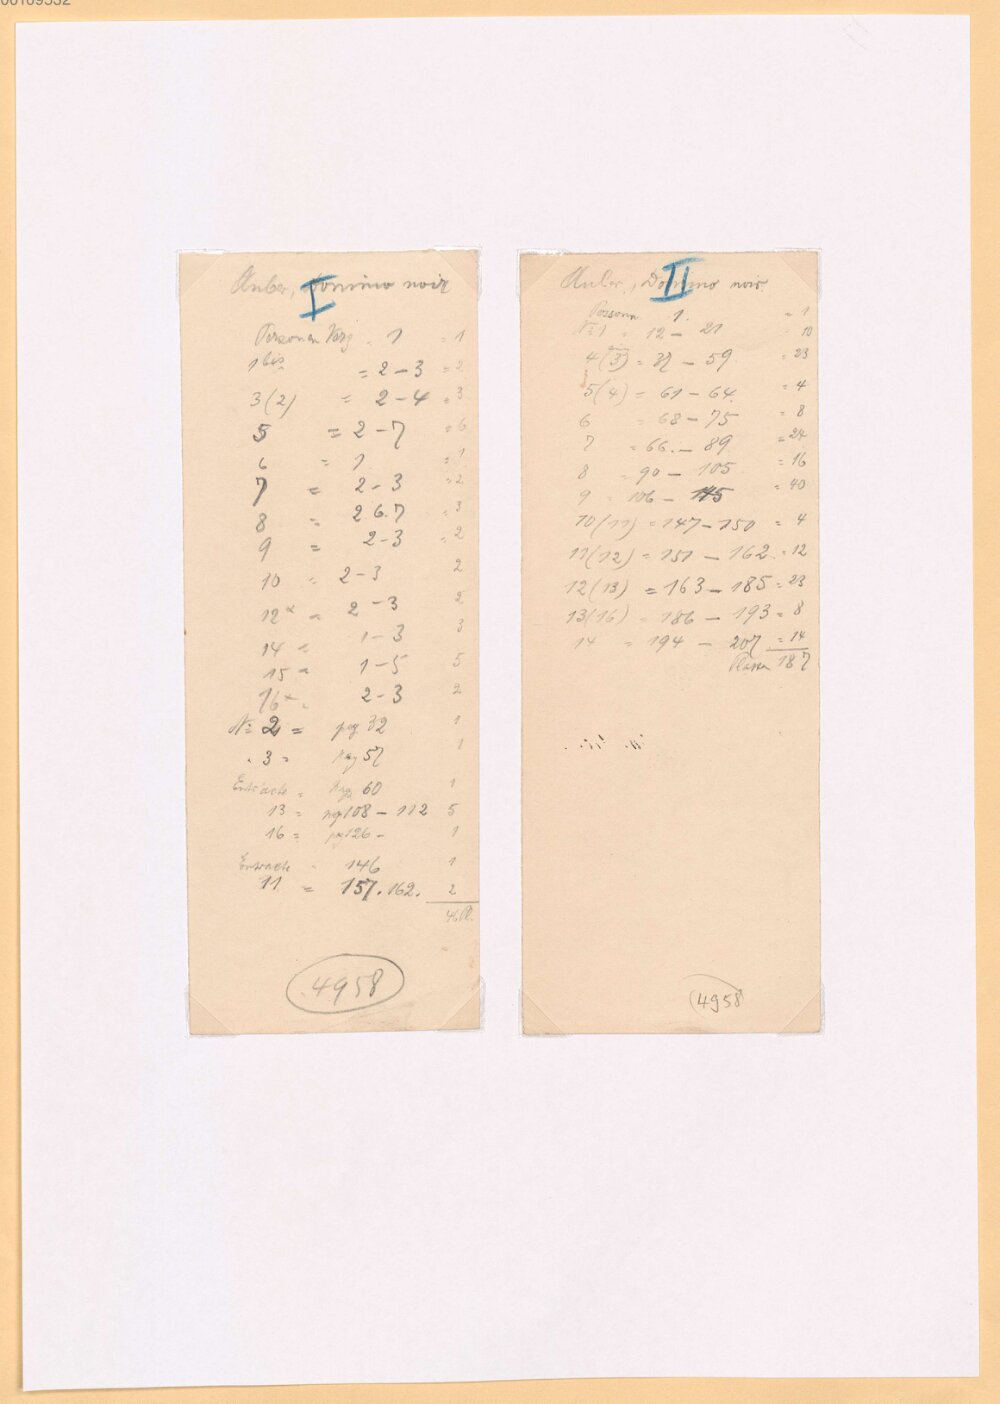 00109532
Auber, Domino noir
I
Personen Verz = 1 = 1
1bis = 2-3 = 2
3(2) = 2-4 = 3
5 = 2-7 = 6
6 = 1 = 1
7 = 2-3 = 2
8 = 2 6.7 = 3
9 = 2-3 = 2
10 = 2-3 2
12a = 2-3 2
14 = 1-3 3
15 = 1-5 5
16 = 2-3 2
No 2 = pag 32 1
. 3 = pag 57 1
Entracte = pag 60 1
13 = pag 108 - 112 5
16 = pag 126 - 1
Entracte - 146 1
11 = 157. 162. 2
46 Pl.
4958
Auber, Domino noir.
II
Personen 1. = 1
No 1 = 12 - 21 10
4(3) = 37 - 59 = 23
5(4) = 61 - 64. = 4
6 = 68 - 75 = 8
7 = 66. - 89 = 24
8 = 90 - 105 = 16
9 = 106 - 145 = 40
10(11) = 147 - 150 = 4
11(12) = 151 - 162. = 12
12(13) = 163 - 185 = 23
13(16) = 186 - 193 = 8
14 = 194 - 207 = 14
Platten 187
4958